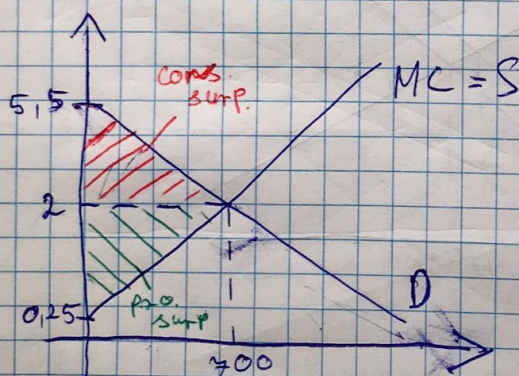 cons.
surp.
MC = S
5,5
2
0,25
pro.
surp
D
700